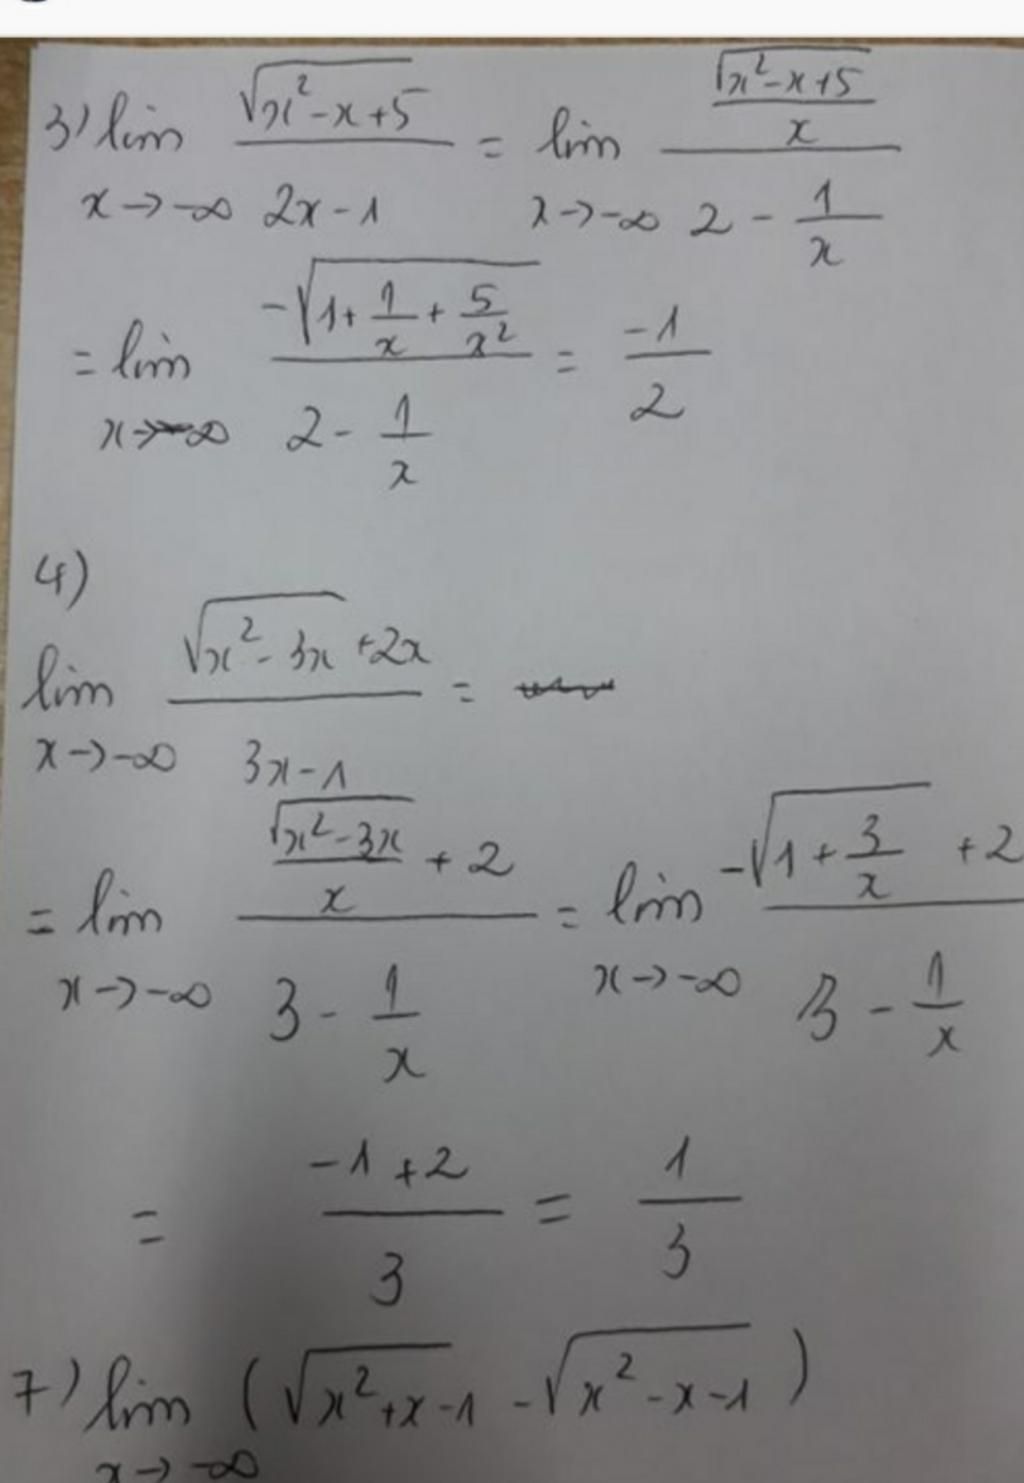 3) lim √(x²-x+5) / (2x-1) = lim (√(x²-x+5) / x) / (2 - 1/x)
x→-∞ x→-∞
= lim -√(1+1/x+5/x²) / (2 - 1/x) = -1/2
x→-∞
4)
lim (√(x²-3x) +2x) / (3x-1) =
x→-∞
= lim (√(x²-3x) / x + 2) / (3 - 1/x) = lim (-√(1+3/x) +2) / (3 - 1/x)
x→-∞ x→-∞
= (-1+2)/3 = 1/3
7) lim (√(x²+x-1) - √(x²-x-1))
x→-∞